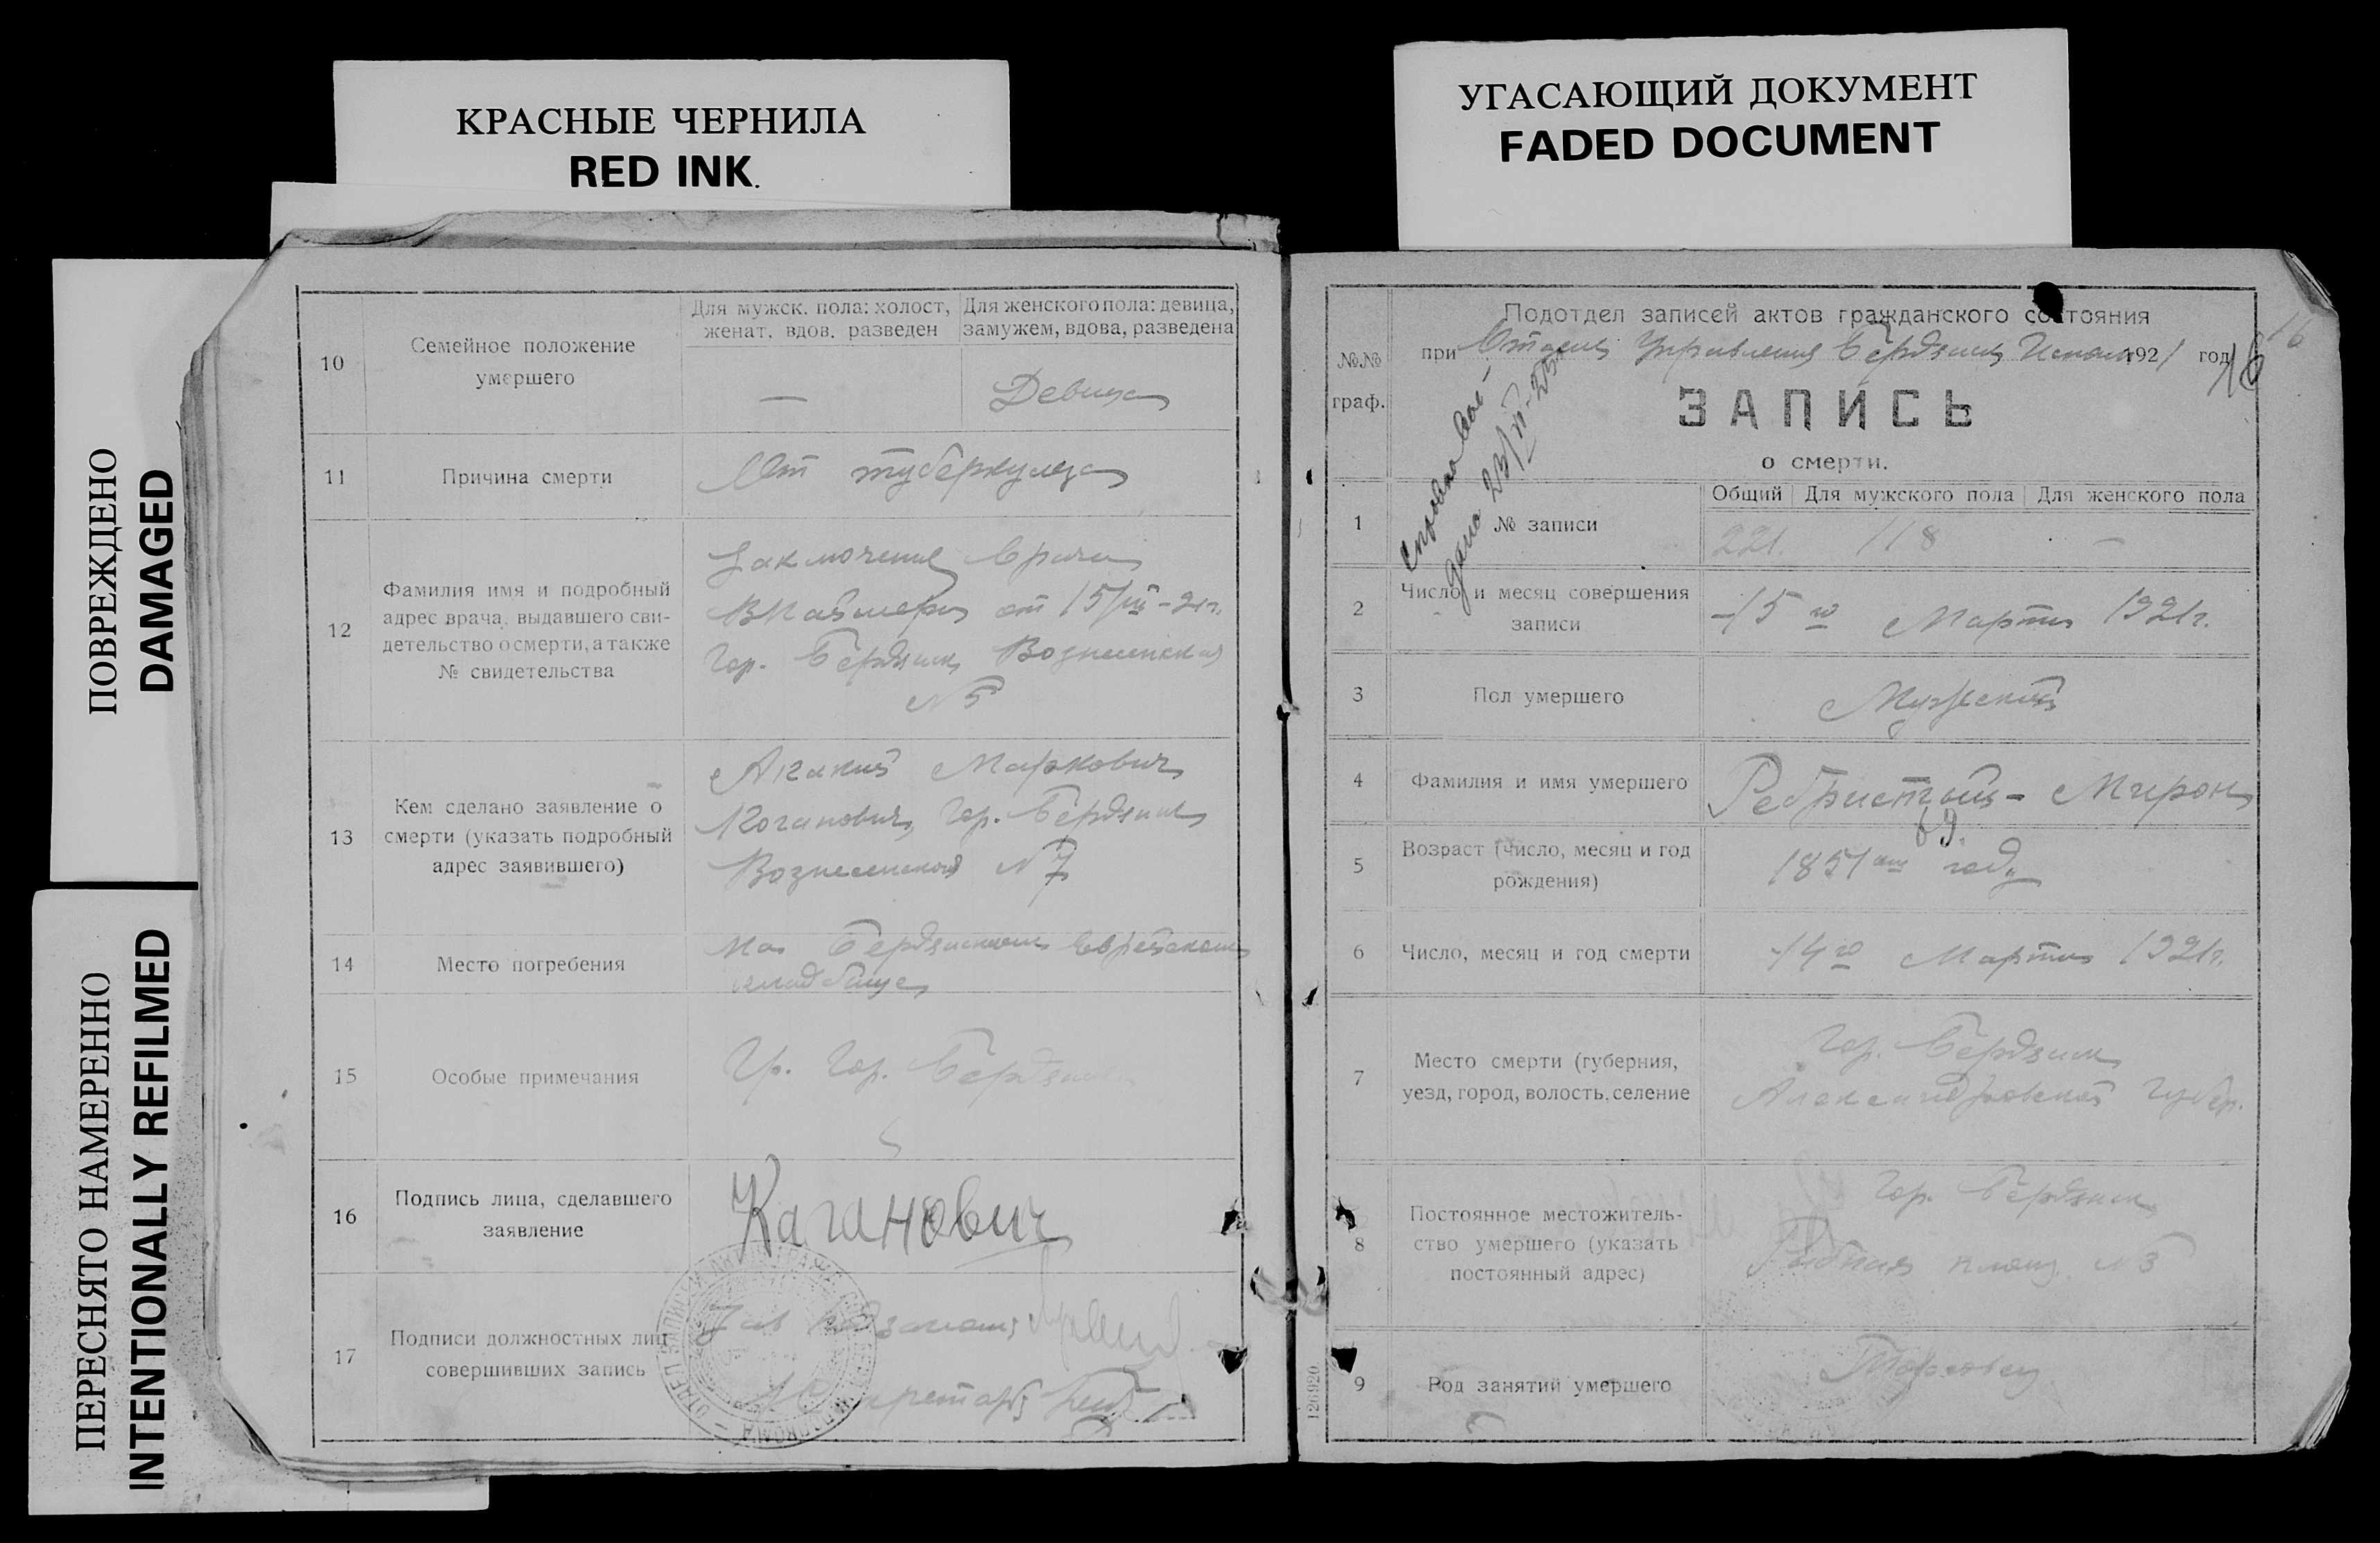 КРАСНЫЕ ЧЕРНИЛА
RED INK.
УГАСАЮЩИЙ ДОКУМЕНТ
FADED DOCUMENT
ПОВРЕЖДЕНО
DAMAGED
ПЕРЕСНЯТО НАМЕРЕННО
INTENTIONALLY REFILMED
10
Семейное положение
умершего
Для мужск. пола: холост,
женат. вдов. разведен
—
Для женского пола: девица,
замужем, вдова, разведена
Девица
11
Причина смерти
От туберкулеза
12
Фамилия имя и подробный
адрес врача, выдавшего сви-
детельство о смерти, а также
№ свидетельства
Заключение врача
от 15/III-21г.
Гор. Бердянск Вознесенская
№ 5
13
Кем сделано заявление о
смерти (указать подробный
адрес заявившего)
Маркович
Коганович, Гор. Бердянск
Вознесенская № 7
14
Место погребения
На Бердянском Еврейском
кладбище
15
Особые примечания
Гр. Гор. Бердянск
16
Подпись лица, сделавшего
заявление
Каганович
17
Подписи должностных лиц
совершивших запись
Зав
Секретарь
№№
граф.
Подотдел записей актов гражданского состояния
при Отделе Управления Бердянск Исполк 1921 год
16
16
ЗАПИСЬ
о смерти.
дана 23/
1
№ записи
Общий
Для мужского пола
Для женского пола
221. 118 —
2
Число и месяц совершения
записи
15го Марта 1921г.
3
Пол умершего
Мужской
4
Фамилия и имя умершего
Ребристый - Мирон
5
Возраст (число, месяц и год
рождения)
69.
1851 году
6
Число, месяц и год смерти
14го Марта 1921г.
7
Место смерти (губерния,
уезд, город, волость, селение
Гор. Бердянск
Александровской Губер.
8
Постоянное местожитель-
ство умершего (указать
постоянный адрес)
Гор. Бердянск
Рыбная площ. № 3
9
Род занятий умершего
Торговец
126920